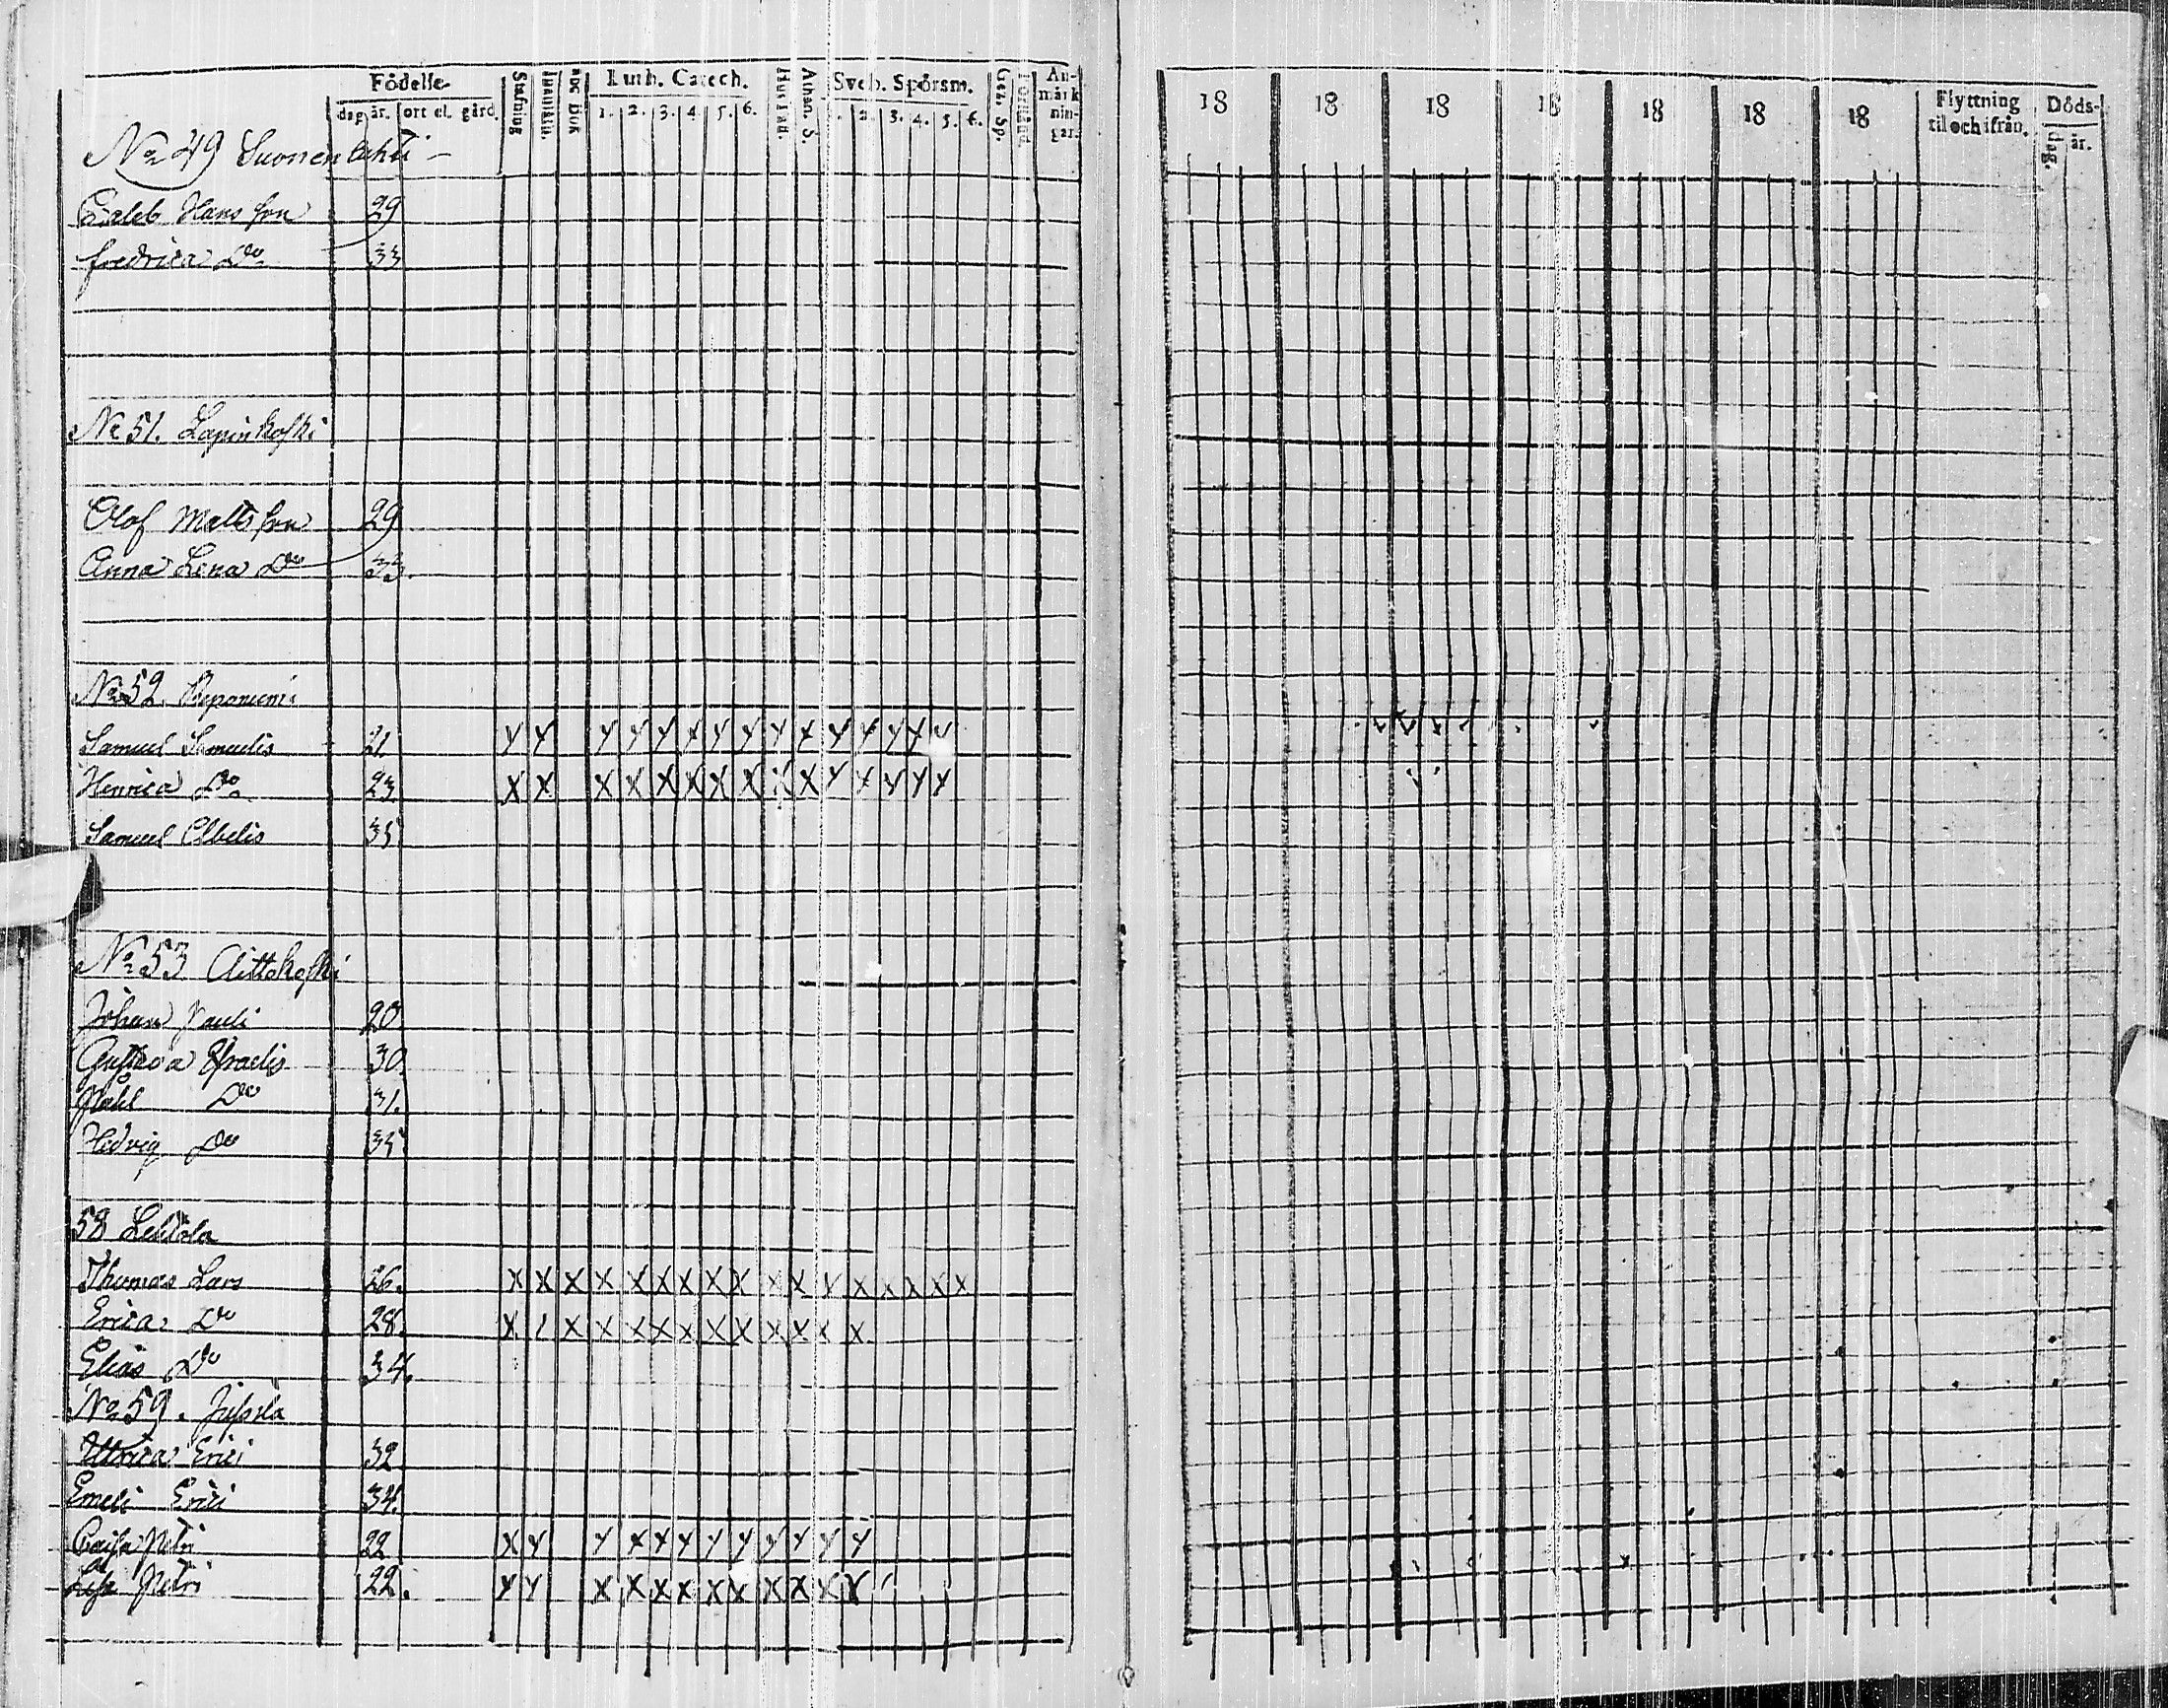 Födelse-
dag. år. ort el. gård.
Stafning
Innanläsn.
Abc Bok
Luth. Catech.
1. 2. 3. 4. 5. 6.
Hustafl.
Athan. S.
Sveb. Spörsm.
1. 2. 3. 4. 5. 6.
Gez. Sp.
Förstånd
Anmärkningar.
18 18 18 18 18 18 18
Flyttning til och ifrån.
Döds-
dag. år.
No 49 Suonenlahti
Caleb Hansson 29
Fredrica Do 33
No 51. Lapinkoski
Olof Mattsson 29
Anna Lena Do 33.
No 52. Reponiemi
Samuel Samuelis 21 y y y y y y y y y y y y y y y
Henrica Do 23 x x x x x x x x x x y x y y y
Samuel Abelis 35
No 53 Aittokoski
Johan Pauli 20
Gustava Israelis 30.
Påhl Do 31.
Hedvig Do 35
58 Lehtola
Thomas Lars 26. x x x x x x x x x x x x x x x x x
Erica Do 28. x / x x x x x x x x x x x
Elias Do 34.
No 59. Jussila
Ulrica Erici 32
Emeli Erici 34.
Caisa Petri 22 x y y x y y y y y y y y
Lisa Petri 22. y y x x x x x x x x x x